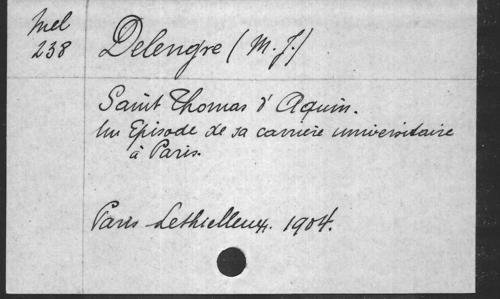 Mel
238
Delengre (M. J.)
Saint Thomas d'Aquin.
Un Episode de sa carrière universitaire
à Paris.
Paris Lethielleux. 1904.